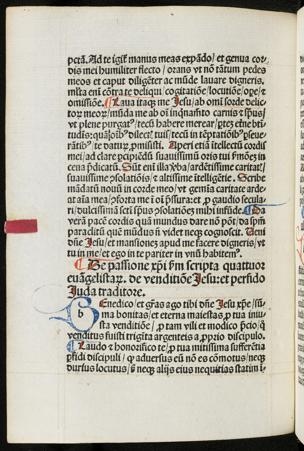 petã. Ad te igit̃ manus meas expãdo/ et genua cor⸗
dis mei humiliter flecto/ orans vt nõ tãtum pedes
meos et caput diligẽter ac mũde lauare digneris.
mſtra em̃ cõtra te deliqui/ cogitatiõe/ locutiõe/ oꝑe/ et
omiſſiõe. Laua itaqꝫ me Jeſu/ ab om̃i ſorde delic⸗
torꝫ meorꝫ/ mũda me ab om̃i inqnamẽto carnis et ſpũs/
vt plene purgatꝰ/ tecũ habere merear/ ptẽ etne bt̃i⸗
tudĩs: dilecti tui/ tecũ in tẽptatiõibꝰ ꝑſeue⸗
rãtibꝰ te daturꝫ ꝓmiſiſti. Aperi etiã ĩtellectũ cordis
mei/ ad clare ꝑcipiẽdũ ſuauiſſimũ oris tui ẽs in
cena p̃dicatũ. Sũt em̃ illa ꝟba/ ardẽtiſſime caritatꝭ/
ſuauiſſime ꝯſolatiõis/ et altiſſime ĩtelligẽtie. Scribe
mãdatũ nouũ in corde meo/ vt gemĩa caritate arde⸗
at aĩa mea/ ꝓforta me ĩ oĩ p̃ſſura: et ꝓ gaudio ſecula⸗
ri/ dulciſſimã ſcti ſpũs ꝯſolatiõẽ mihi infũde. Da
verã pacẽ cordis quã mundus dare nõ põt/ da ſpm̃
paraclitũ quẽ mũdus nõ videt neqꝫ cognoſcit. Veni
dñe Jeſu/ et manſionẽ apud me facere digneris/ vt
tu in me/ et ego in te pariter in vnũ habitem?
De paſſione xp̃i ſm̃ ſcripta quattuor
euãgeliſtarꝫ. de venditiõe Jeſu: et perfido
Juda traditore.
Benedico et gr̃as ago tibi dñe Jeſu xp̃e/ ſũ⸗
ma bonitas/ et eterna maieſtas/ ꝓ tua iniu⸗
ſta venditiõe/ ꝓ tam vili et modico p̃cio/ qͦ
venditus fuiſti trigĩta argenteis a ꝓprio diſcipulo.
Laudo et honorifico te/ ꝓ tua mitiſſima ſufferẽtia
ꝑfidi diſcipuli/ qͦ aduerſus eũ nõ es cõmotus/ neqꝫ
durſus locutus/ ſꝫ neqꝫ alijs eius nequitias ſtatim i⸗